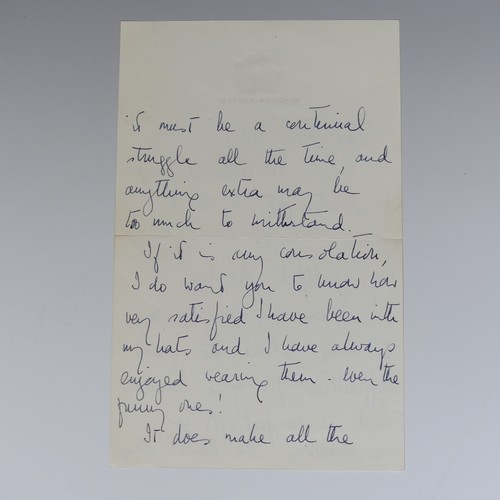 it must be a continual
struggle all the time, and
anything extra may be
too much to withstand.
If it is any consolation,
I do want you to know how
very satisfied I have been with
my hats and I have always
enjoyed wearing them - even the
funny ones!
It does make all the